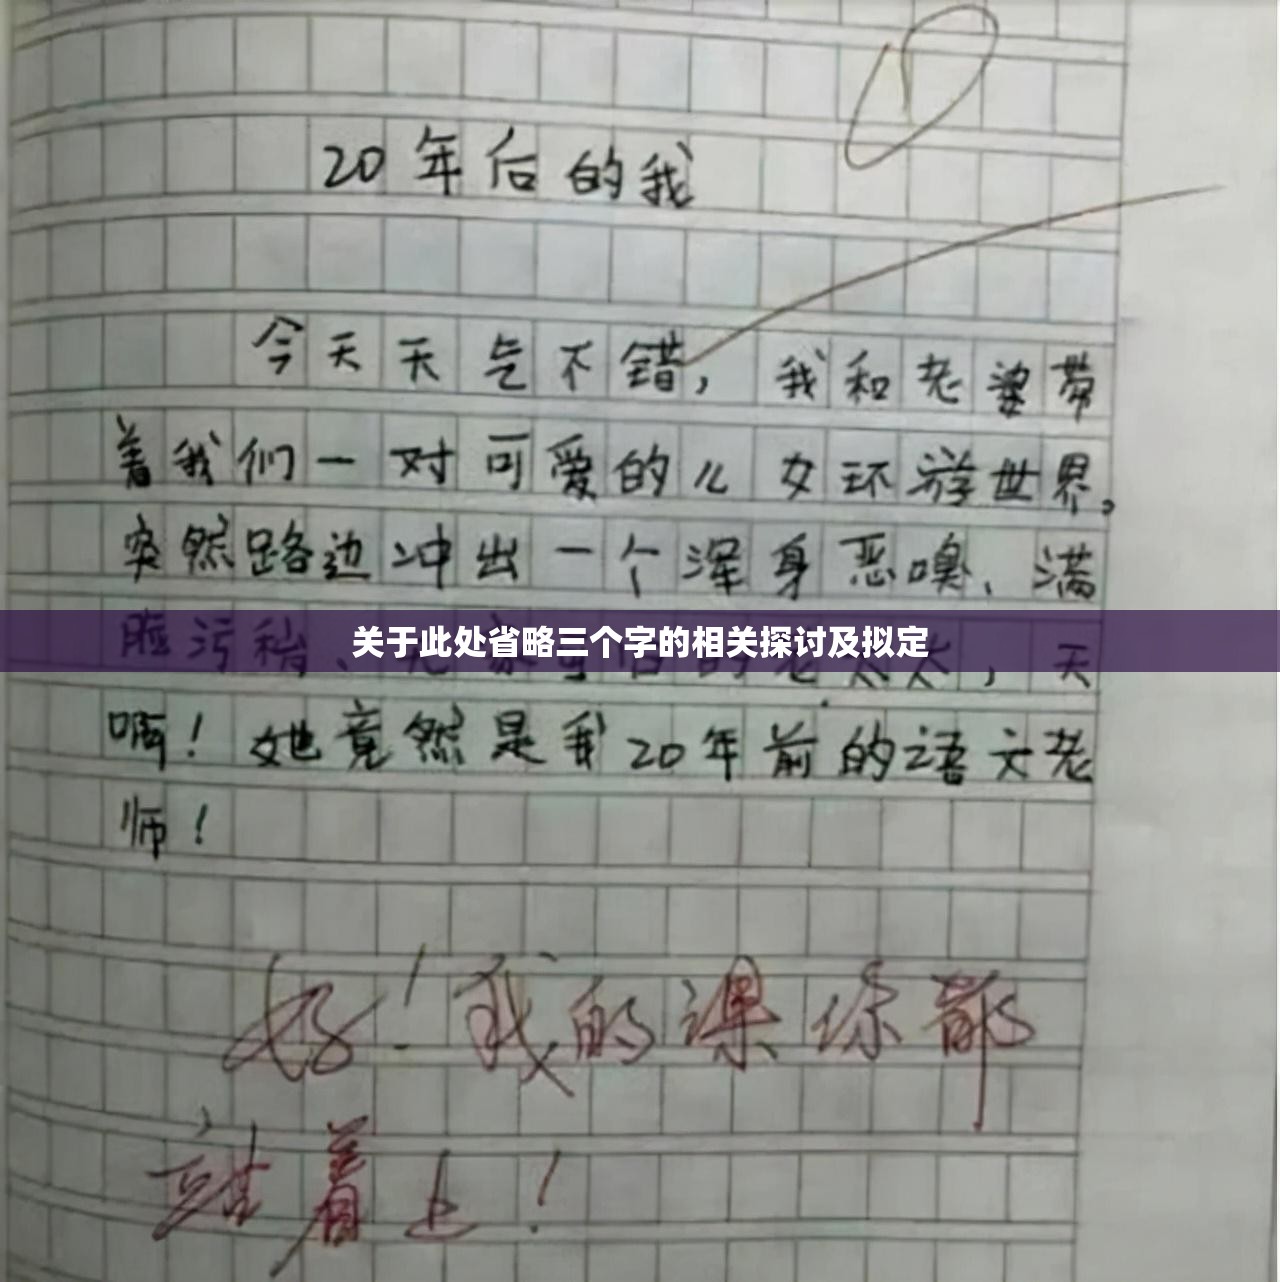 20年后的我
今天天气不错,我和老婆带
着我们一对可爱的儿女环游世界,
突然路边冲出一个浑身恶嗅、满
脸污秽、无家可归的老太太,天
关于此处省略三个字的相关探讨及拟定
啊!她竟然是我20年前的语文老
师!
好!我的课你都
站着上!